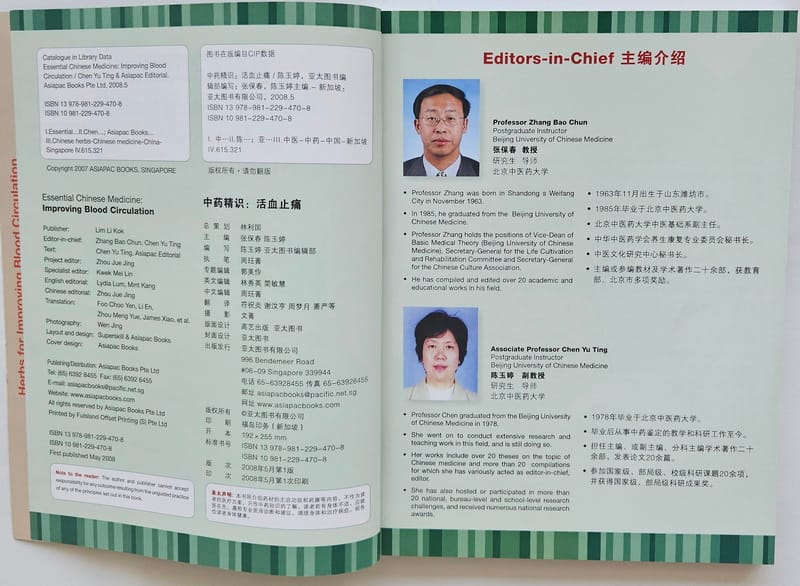 Herbs for Improving Blood Circulation
Catalogue in Library Data
Essential Chinese Medicine: Improving Blood
Circulation / Chen Yu Ting & Asiapac Editorial.
Asiapac Books Pte Ltd, 2008.5
ISBN 13 978-981-229-470-8
ISBN 10 981-229-470-8
I.Essential...II.Chen...; Asiapac Books....
III.Chinese herbs-Chinese medicine-China-
Singapore IV.615.321
Copyright 2007 ASIAPAC BOOKS, SINGAPORE
图书在版编目CIP数据
中药精识：活血止痛 / 陈玉婷，亚太图书编
辑部编写；张保春，陈玉婷主编.- 新加坡：
亚太图书有限公司，2008.5
ISBN 13 978-981-229-470-8
ISBN 10 981-229-470-8
I. 中…II.陈…；亚…III.中医-中药-中国-新加坡
IV.615.321
版权所有·请勿翻版
Essential Chinese Medicine:
Improving Blood Circulation
Publisher: Lim Li Kok
Editor-in-chief: Zhang Bao Chun, Chen Yu Ting
Text: Chen Yu Ting, Asiapac Editorial
Project editor: Zhou Jue Jing
Specialist editor: Kwek Mei Lin
English editorial: Lydia Lum, Mint Kang
Chinese editorial: Zhou Jue Jing
Translation: Foo Choo Yen, Li En,
Zhou Meng Yue, James Xiao, et al.
Photography: Wen Jing
Layout and design: Superskill & Asiapac Books
Cover design: Asiapac Books
Publishing/Distribution: Asiapac Books Pte Ltd
Tel: (65) 6392 8455 Fax: (65) 6392 6455
E-mail: asiapacbooks@pacific.net.sg
Website: www.asiapacbooks.com
All rights reserved by Asiapac Books Pte Ltd
Printed by Fulsland Offset Printing (S) Pte Ltd
ISBN 13 978-981-229-470-8
ISBN 10 981-229-470-8
First published May 2008
Note to the reader: The author and publisher cannot accept
responsibility for any outcome resulting from the unguided practice
of any of the principles set out in this book.
中药精识：活血止痛
总策划 林利国
主编 张保春 陈玉婷
编写 陈玉婷 亚太图书编辑部
执笔 周珏菁
专题编辑 郭美伶
英文编辑 林秀英 简敏慧
中文编辑 周珏菁
翻译 符祝炎 谢汶亨 周梦月 萧严等
摄影 文菁
版面设计 高艺出版 亚太图书
封面设计 亚太图书
出版发行 亚太图书有限公司
996 Bendemeer Road
#06-09 Singapore 339944
电话 65-63928455 传真 65-63926455
邮址 asiapacbooks@pacific.net.sg
网址 www.asiapacbooks.com
版权所有 ©亚太图书有限公司
印刷 福岛印务（新加坡）
开本 192 x 255 mm
标准书号 ISBN 13 978-981-229-470-8
ISBN 10 981-229-470-8
版次 2008年5月第1版
印次 2008年5月第1次印刷
Editors-in-Chief 主编介绍
Professor Zhang Bao Chun
Postgraduate Instructor
Beijing University of Chinese Medicine
张保春 教授
研究生 导师
北京中医药大学
• Professor Zhang was born in Shandong s Weifang
City in November 1963.
• In 1985, he graduated from the Beijing University of
Chinese Medicine.
• Professor Zhang holds the positions of Vice-Dean of
Basic Medical Theory (Beijing University of Chinese
Medicine), Secretary-General for the Life Cultivation
and Rehabilitation Committee and Secretary-General
for the Chinese Culture Association.
• He has compiled and edited over 20 academic and
educational works in his field.
• 1963年11月出生于山东潍坊市。
• 1985年毕业于北京中医药大学。
• 北京中医药大学中医基础系副主任。
• 中华中医药学会养生康复专业委员会秘书长。
• 中医文化研究中心秘书长。
• 主编或参编教材及学术著作二十余部，获教育
部、北京市多项奖励。
Associate Professor Chen Yu Ting
Postgraduate Instructor
Beijing University of Chinese Medicine
陈玉婷 副教授
研究生 导师
北京中医药大学
• Professor Chen graduated from the Beijing University
of Chinese Medicine in 1978.
• She went on to conduct extensive research and
teaching work in this field, and is still doing so.
• Her works include over 20 theses on the topic of
Chinese medicine and more than 20 compilations
for which she has variously acted as editor-in-chief,
editor.
• She has also hosted or participated in more than
20 national, bureau-level and school-level research
challenges, and received numerous national research
awards.
• 1978年毕业于北京中医药大学。
• 毕业后从事中药鉴定的教学和科研工作至今。
• 担任主编、或副主编、分科主编学术著作二十
余部，发表论文20余篇。
• 参加国家级、部局级、校级科研课题20余项，
并获得国家级、部局级科研成果奖。